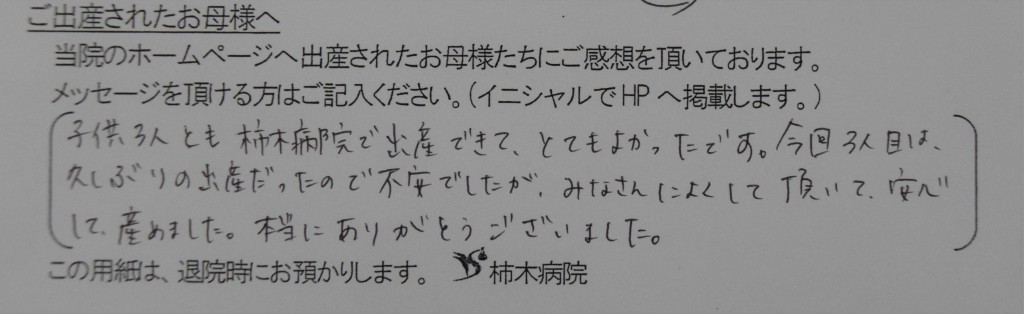 ご出産されたお母様へ
当院のホームページへ出産されたお母様たちにご感想を頂いております。
メッセージを頂ける方はご記入ください。(イニシャルでHPへ掲載します。)
子供3人とも柿木病院で出産できて、とてもよかったです。今回3人目は、
久しぶりの出産だったので不安でしたが、みなさんによくして頂いて、安心
して、産めました。本当にありがとうございました。
この用紙は、退院時にお預かりします。 柿木病院